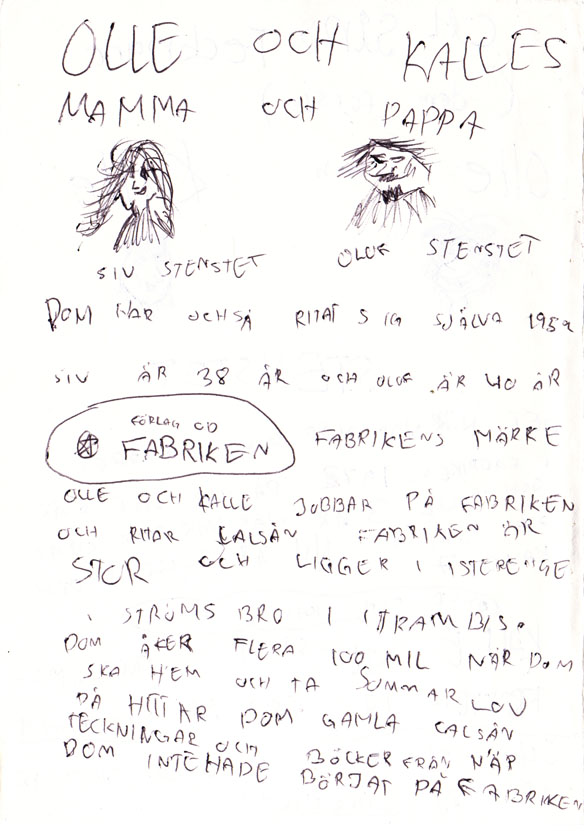 OLLE OCH KALLES
MAMMA OCH PAPPA
SIV STENSTET OLOF STENSTET
DOM HAR OCHSÅ RITAT SIG SJÄLVA
SIV ÄR 38 ÅR OCH OLOF ÄR 40 ÅR
FÖRLAG CD
FABRIKEN FABRIKENS MÄRKE
OLLE OCH KALLE JOBBAR PÅ FABRIKEN
OCH RITAR CALSÅN FABRIKEN ÄR
STOR OCH LIGGER I ISTERENGE
I STRÖMS BRO I
DOM ÅKER FLERA 100 MIL NÄR DOM
SKA HEM OCH TA SOMMAR LOV
DÅ HITTAR DOM GAMLA CALSÅN
TECKNINGAR OCH BÖCKER FRÅN NÄR
DOM INTEHADE BÖRJAT PÅ FABRIKEN